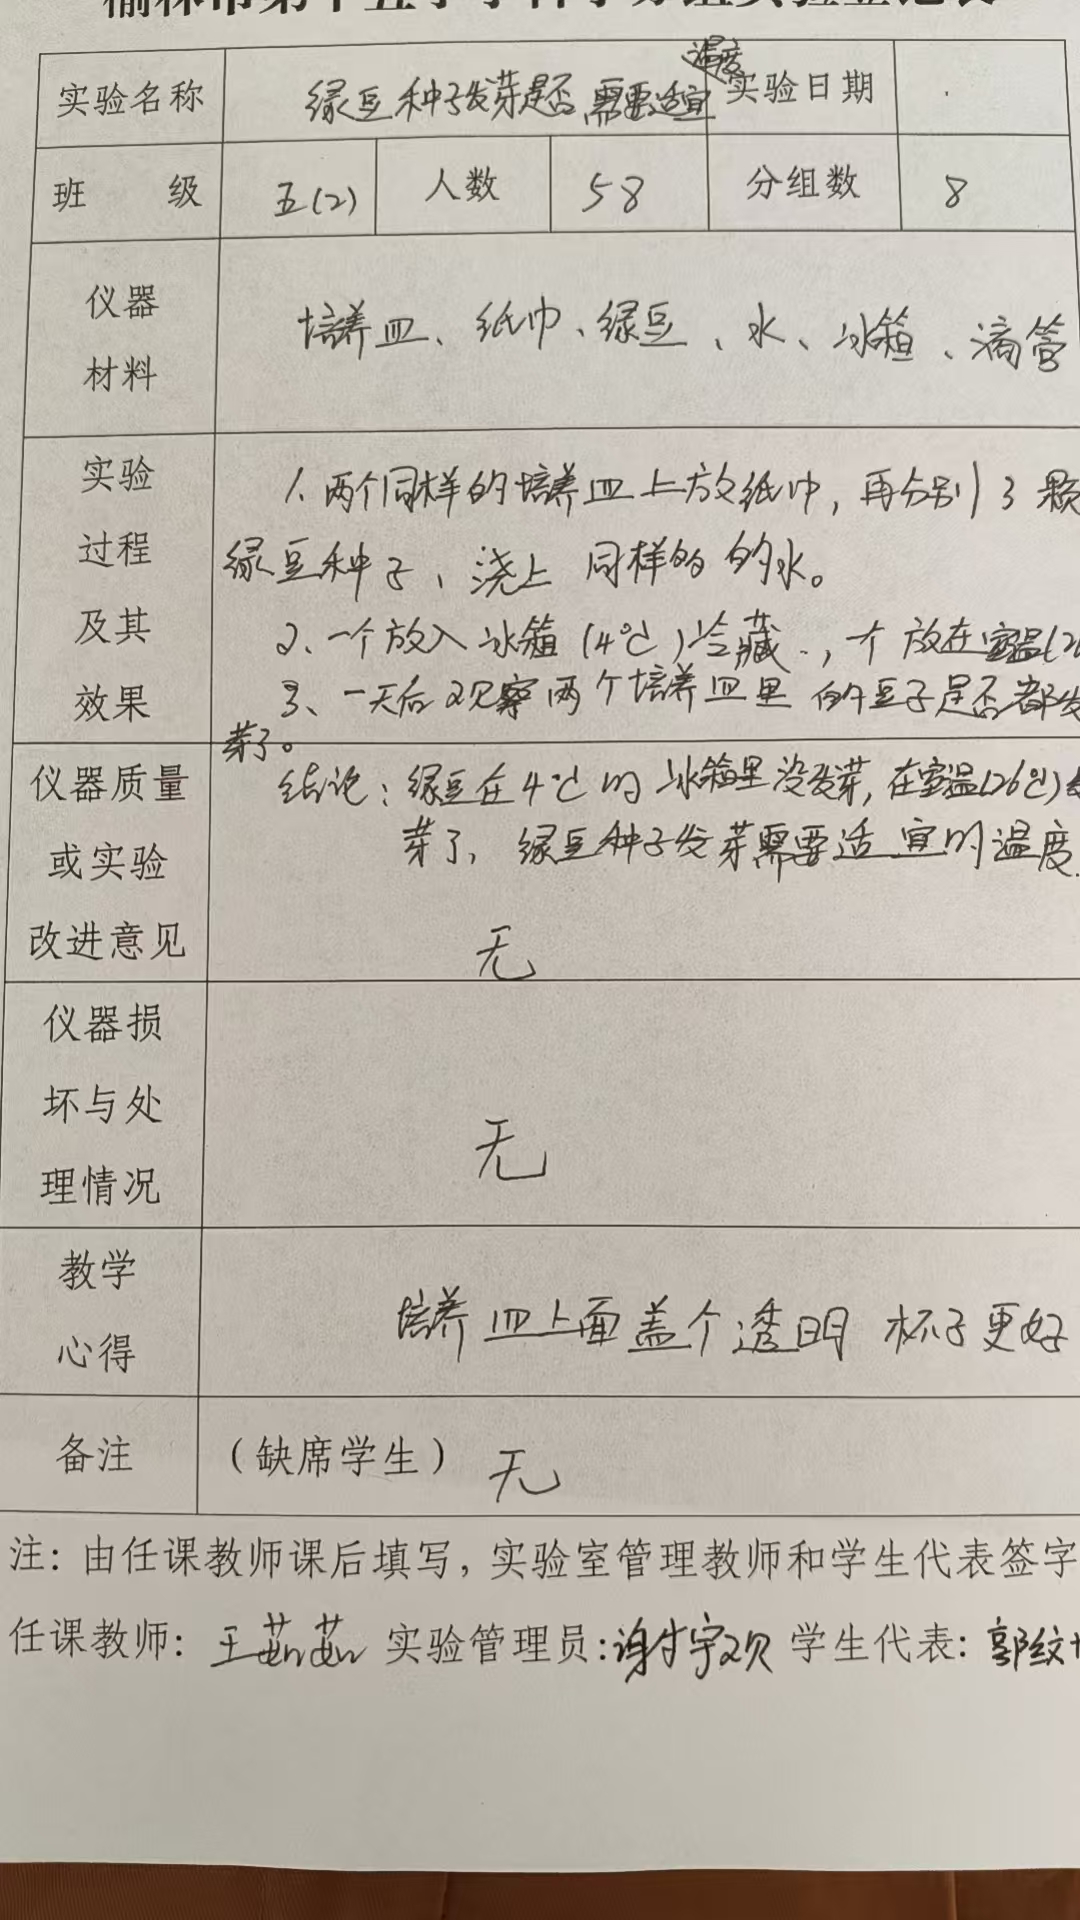 实验名称 绿豆种子发芽是否需要适宜温度 实验日期
班 级 五(2) 人数 58 分组数 8
仪器 材料 培养皿、纸巾、绿豆、水、冰箱、滴管
实验 过程 及其 效果
1、两个同样的培养皿上放纸巾，再分别3颗
绿豆种子、浇上同样的的水。
2、一个放入冰箱(4℃)冷藏.，个放在室温(26
3、一天后观察两个培养皿里的豆子是否都发
芽了。
仪器质量 或实验 改进意见
结论：绿豆在4℃的冰箱里没发芽，在室温(26℃)
芽了、绿豆种子发芽需要适宜的温度.
无
仪器损 坏与处 理情况 无
教学 心得 培养皿上面盖个透明杯子更好
备注 （缺席学生）无
注：由任课教师课后填写，实验室管理教师和学生代表签字
任课教师：王茹茹 实验管理员:谢宇欢 学生代表：郭纹